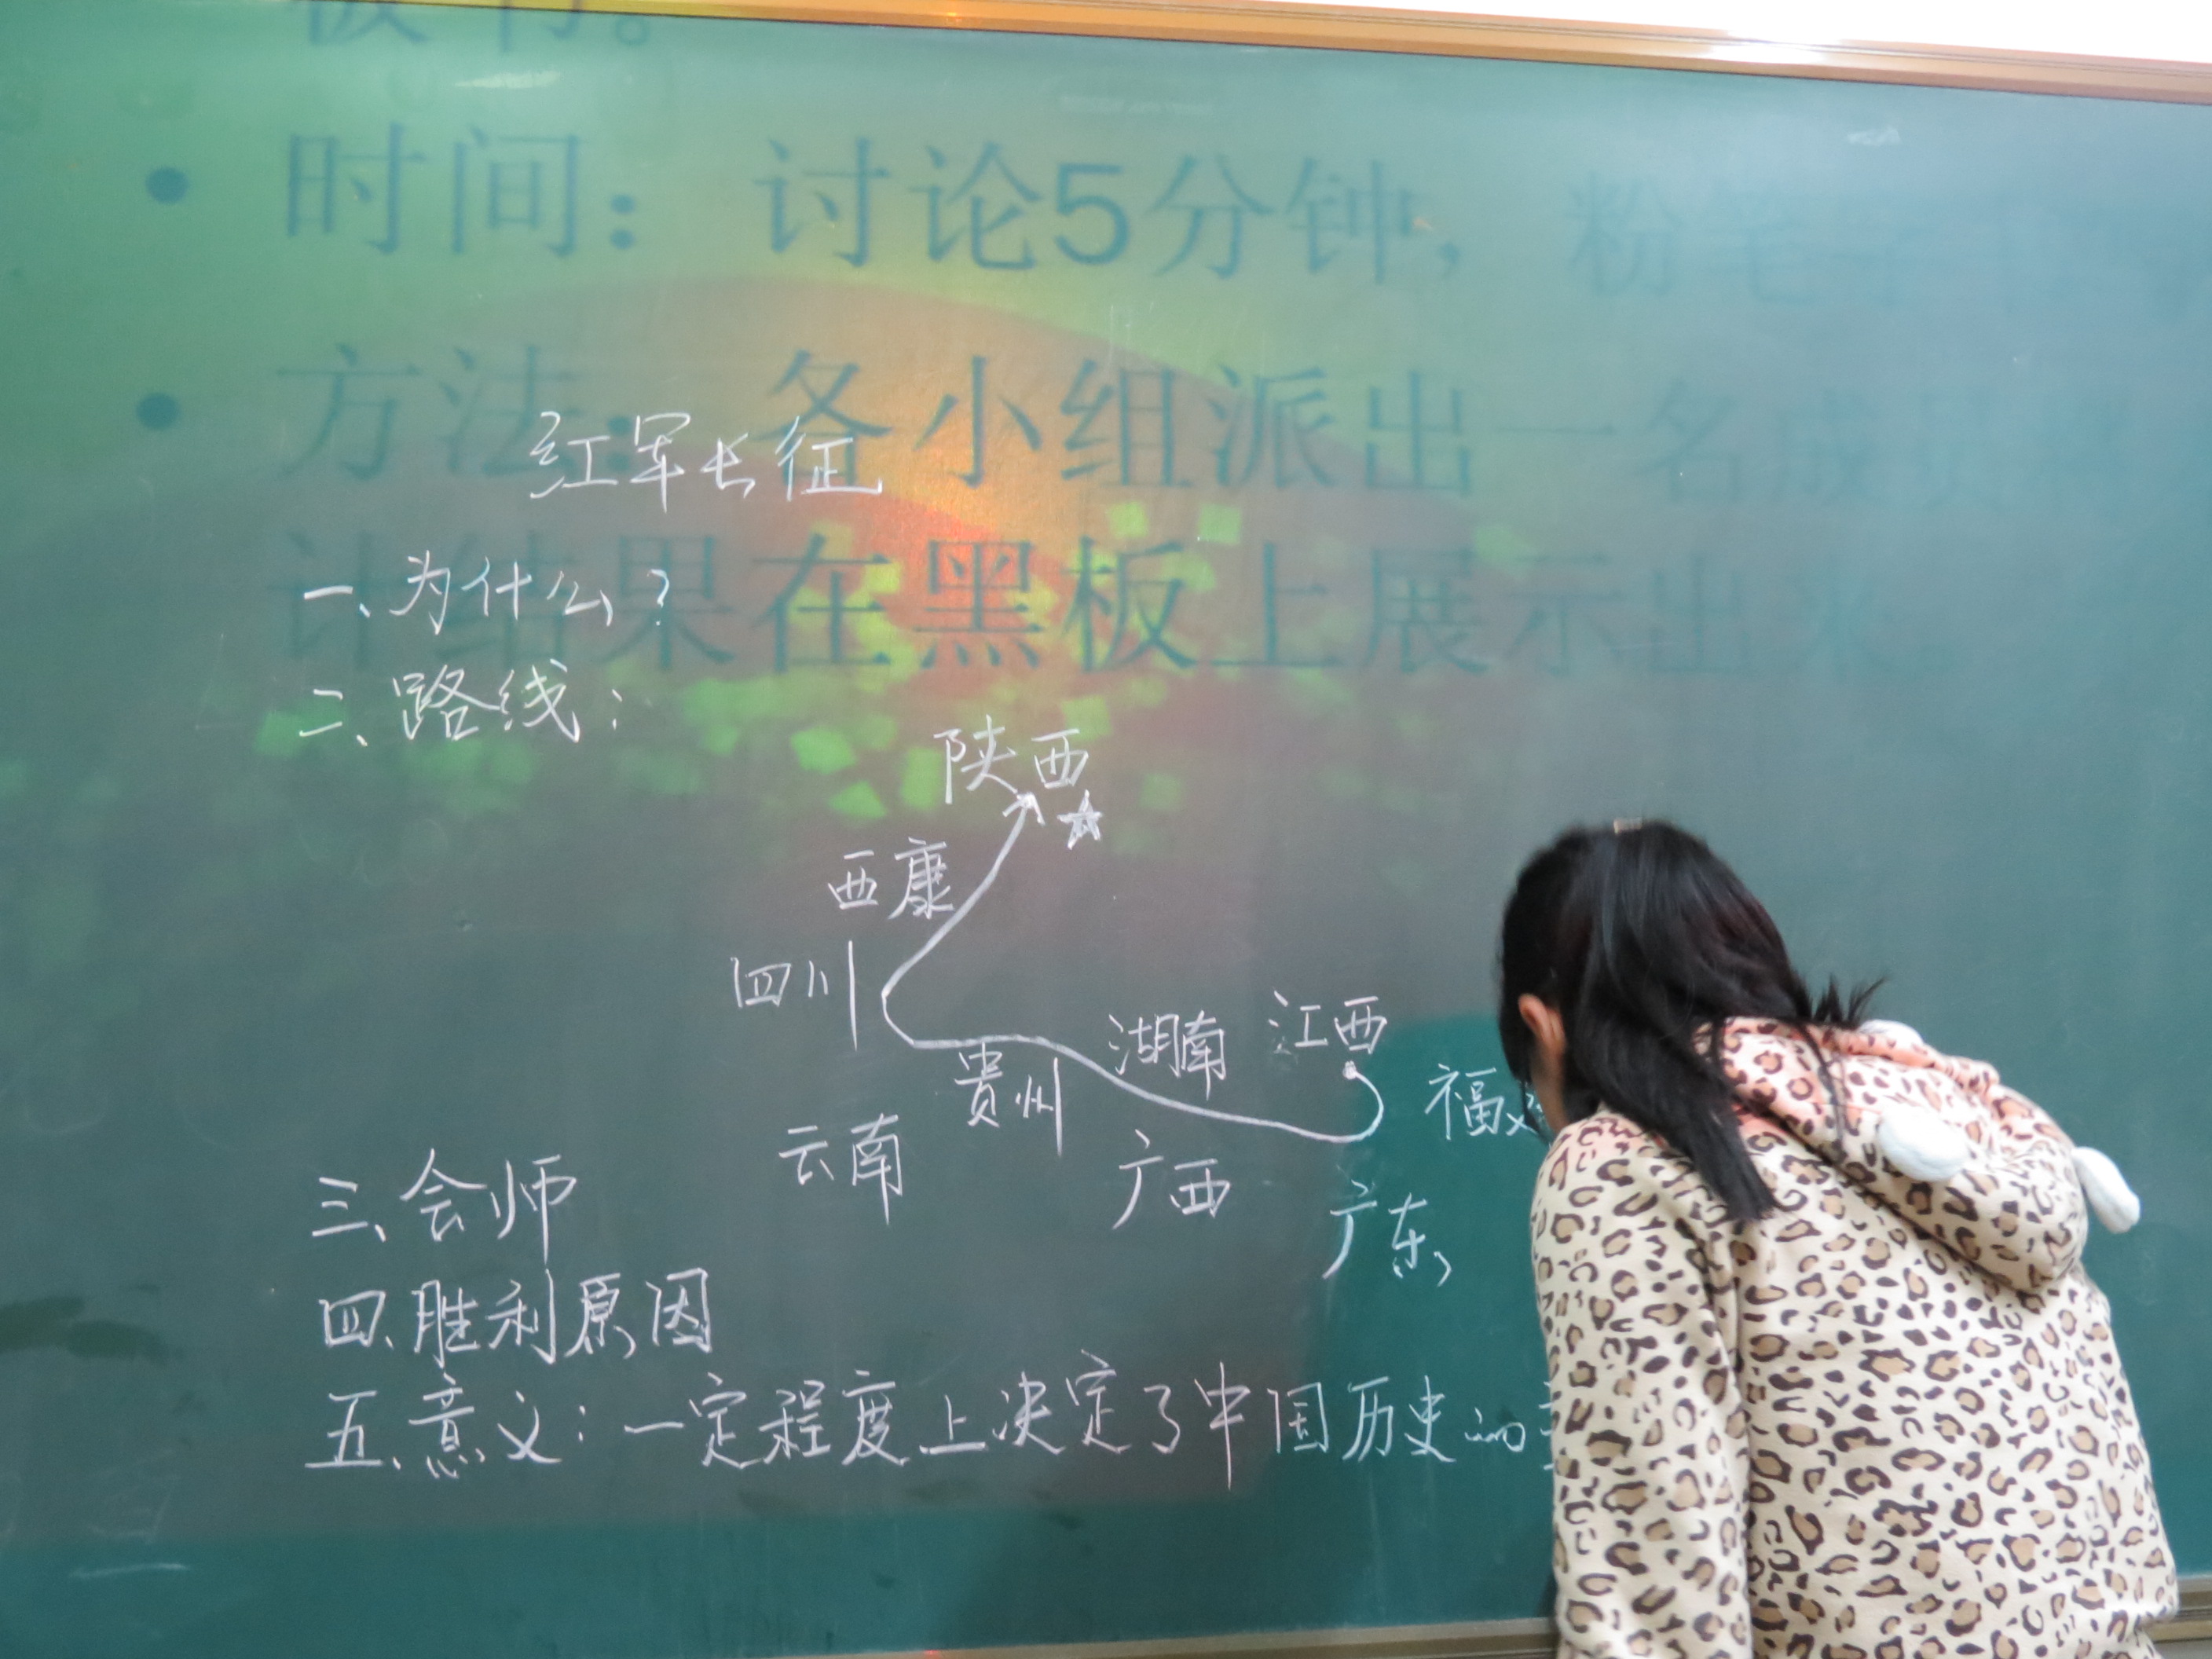 板书。
• 时间：讨论5分钟，粉笔字
• 方法：各小组派出一名成员
计结果在黑板上展示出来
红军长征
一、为什么？
二、路线：
陕西
西康
四川
湖南 江西
贵州
福
云南
广西
广东
三、会师
四、胜利原因
五、意义：一定程度上决定了中国历史的